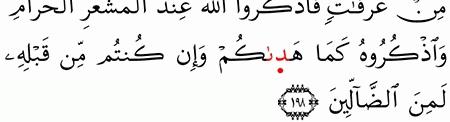 مِّنْ عَرَفَٰتٍ فَٱذْكُرُوا۟ ٱللَّهَ عِندَ ٱلْمَشْعَرِ ٱلْحَرَامِ
وَٱذْكُرُوهُ كَمَا هَدَىٰكُمْ وَإِن كُنتُم مِّن قَبْلِهِۦ
لَمِنَ ٱلضَّآلِّينَ ١٩٨